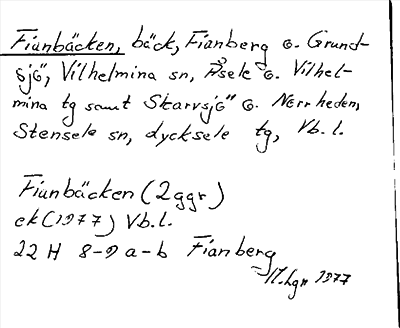 Fianbäcken, bäck, Fianberg o. Grund-
sjö, Vilhelmina sn, Åsele o. Vilhel-
mina tg samt Skarvsjö o. Norrheden,
Stensele sn, Lycksele tg, Vb. l.
Fianbäcken (2 ggr)
ek (1977) Vb. l.
22 H 8-9 a-b Fianberg
1977